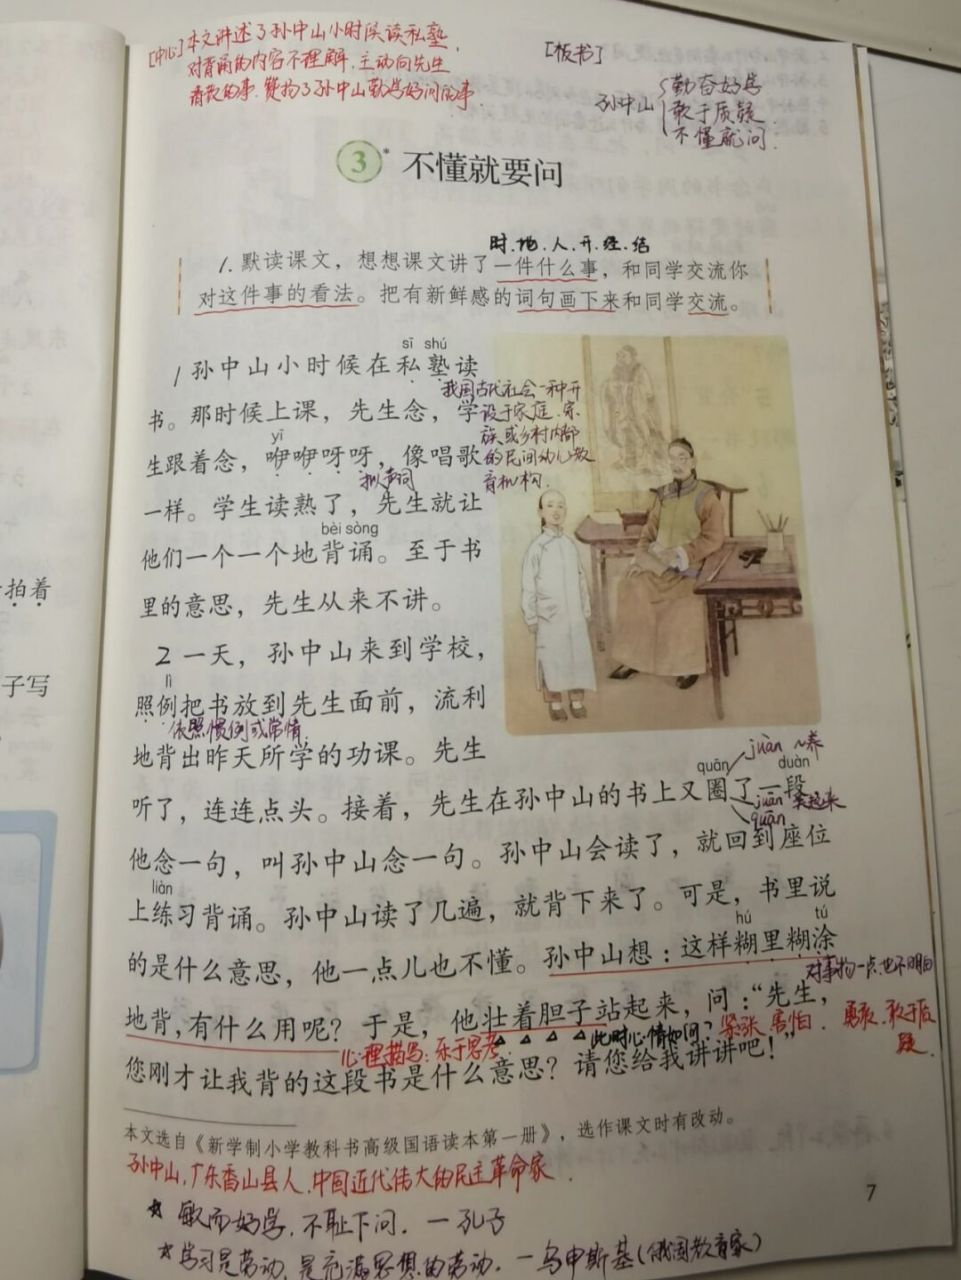 [中心]本文讲述了孙中山小时候读私塾,
对背诵的内容不理解,主动向先生
请教的事.赞扬了孙中山勤学好问的事.
[板书]
孙中山
勤奋好学
敢于质疑
不懂就问.
3* 不懂就要问
时.地.人.开.经.结
1.默读课文，想想课文讲了一件什么事，和同学交流你
对这件事的看法。把有新鲜感的词句画下来和同学交流。
sī shú
1 孙中山小时候在私塾读
我国古代社会一种开
书。那时候上课，先生念，学
设于家庭、宗
族或乡村内部
yī
生跟着念，咿咿呀呀，像唱歌
的民间幼儿教
育机构.
拟声词
一样。学生读熟了，先生就让
bèi sòng
他们一个一个地背诵。至于书
里的意思，先生从来不讲。
2 一天，孙中山来到学校，
lì
照例把书放到先生面前，流利
依照惯例或常情.
地背出昨天所学的功课。先生
juàn ~养
quān duàn
听了，连连点头。接着，先生在孙中山的书上又圈了一段，
juān 关起来
quān
他念一句，叫孙中山念一句。孙中山会读了，就回到座位
liàn
上练习背诵。孙中山读了几遍，就背下来了。可是，书里说
hú tú
的是什么意思，他一点儿也不懂。孙中山想：这样糊里糊涂
对事物一点也不明白
地背，有什么用呢？于是，他壮着胆子站起来，问：“先生，
心理描写：乐于思考
此时心情如何？紧张 害怕. 勇敢.敢于质
疑.
您刚才让我背的这段书是什么意思？请您给我讲讲吧！”
本文选自《新学制小学教科书高级国语读本第一册》，选作课文时有改动。
孙中山,广东香山县人.中国近代伟大的民主革命家.
☆ 敏而好学,不耻下问. 一孔子
7
☆学习是劳动,是充满思想的劳动. 一乌申斯基(俄国教育家)
拍着
子写